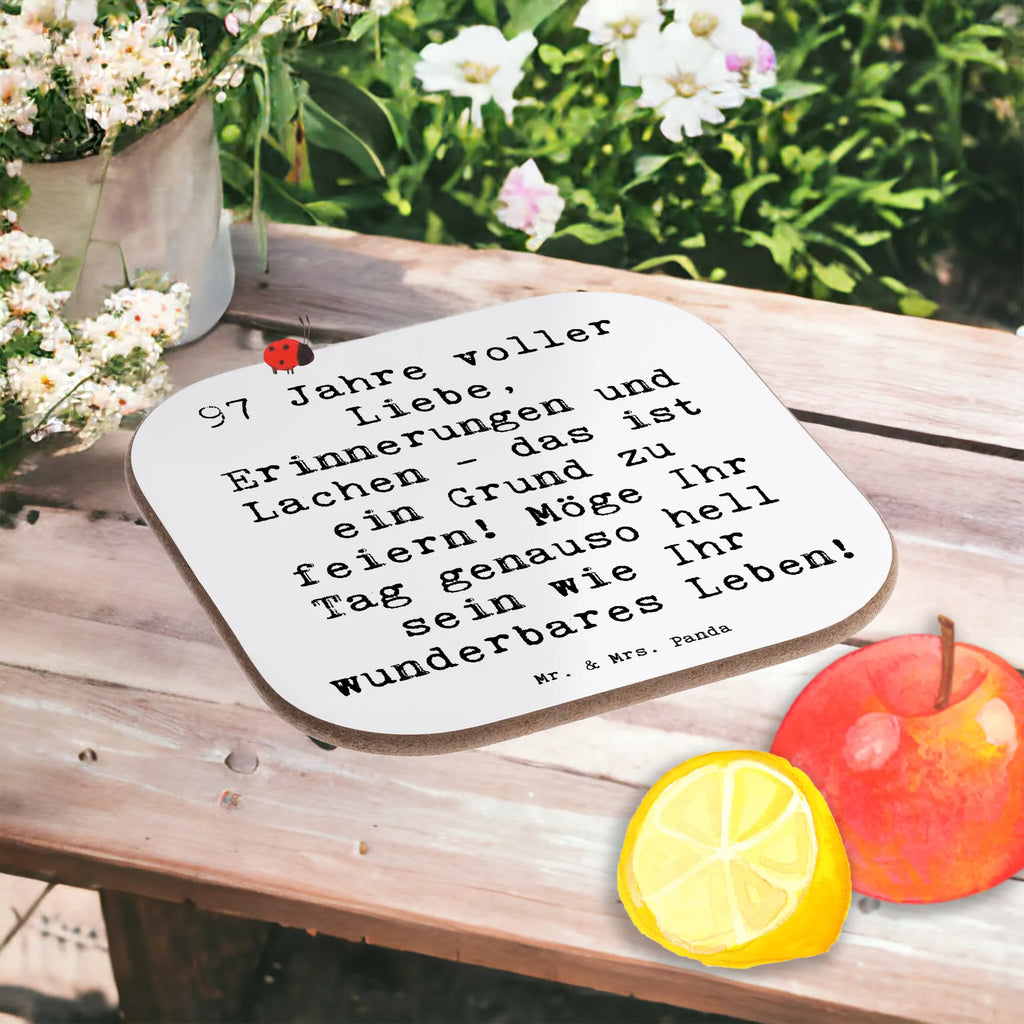 97 Jahre voller
Liebe,
Erinnerungen und
Lachen - das ist
ein Grund zu
feiern! Möge Ihr
Tag genauso hell
sein wie Ihr
wunderbares Leben!
Mr. & Mrs. Panda